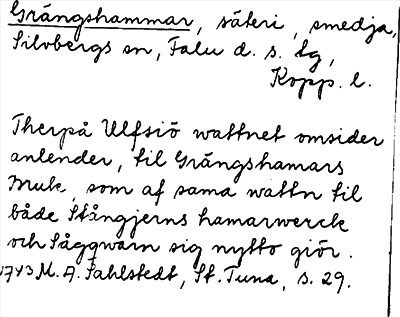 Grängshammar, säteri, smedja,
Silvbergs sn, Falu d. s. lg,
Kopp. l.
Therpå Ulfsiö wattnet omsider
anlender, til Grängshamars
Bruk, som af sama wattn til
både Stångjerns hamarwerck
och Sågqwarn sig nytto giör.
1743 M. A. Sahlstedt, St. Tuna, s. 29.